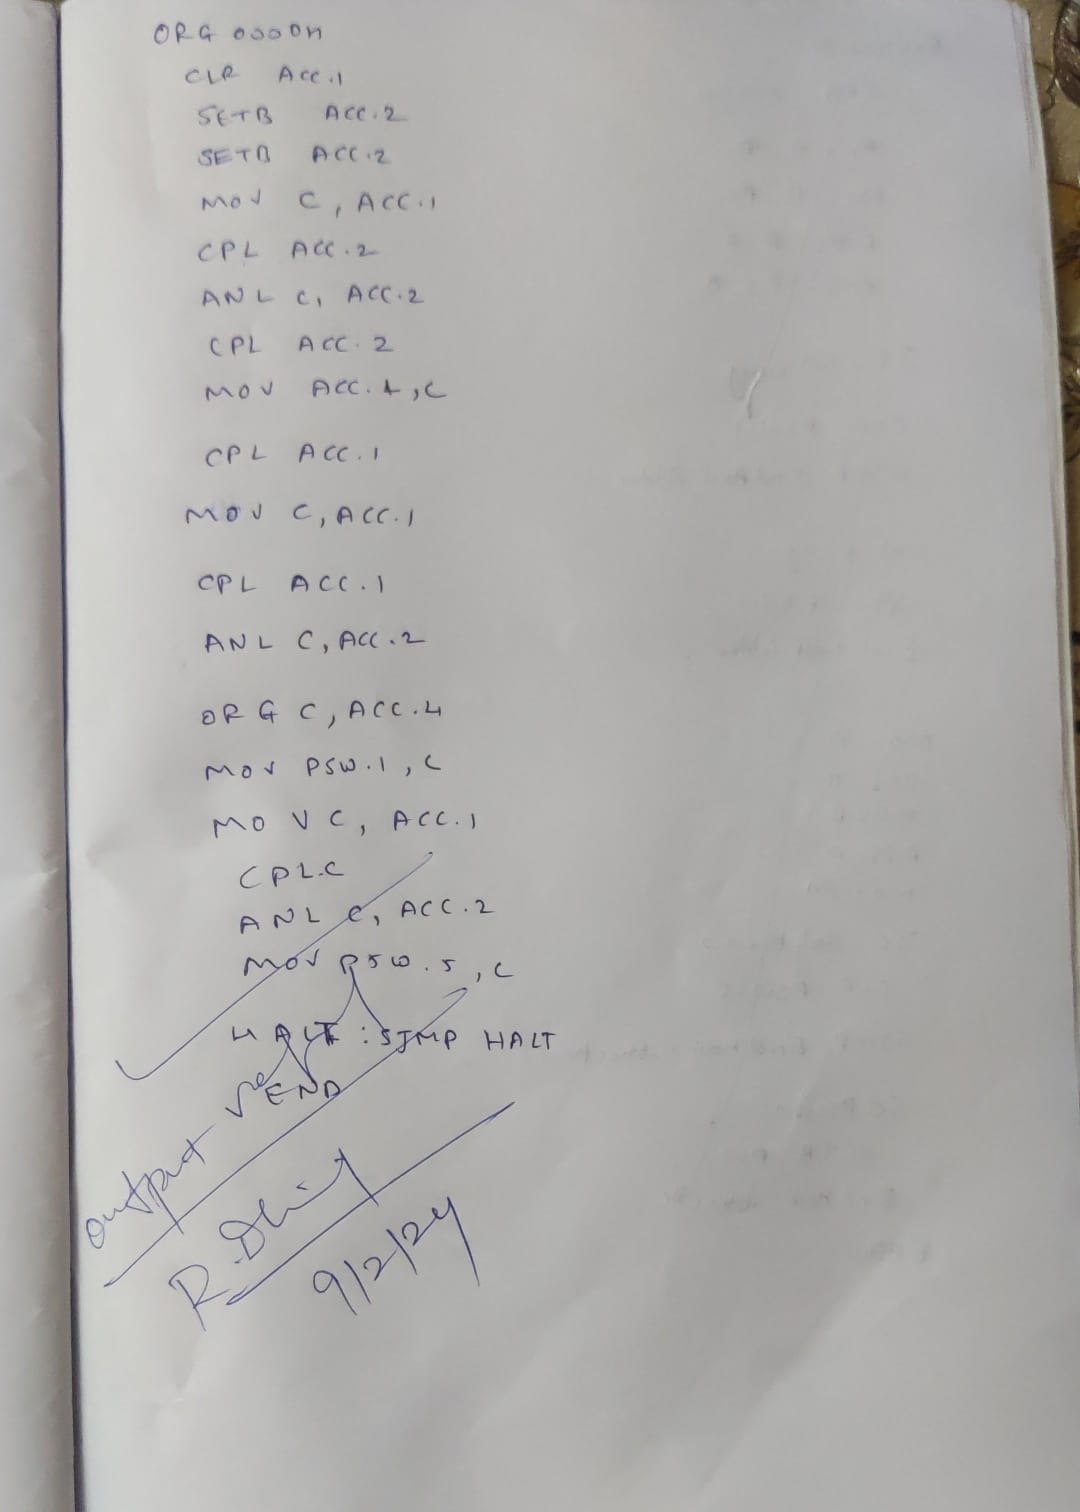 ORG 0000H
CLR ACC.1
SETB ACC.2
SETB ACC.2
MOV C, ACC.1
CPL ACC.2
ANL C, ACC.2
CPL ACC.2
MOV ACC.4,C
CPL ACC.1
MOV C, ACC.1
CPL ACC.1
ANL C, ACC.2
ORG C, ACC.4
MOV PSW.1, C
MOV C, ACC.1
CPL.C
ANL C, ACC.2
MOV PSW.5, C
HALT : SJMP HALT
END
output
9/2/24